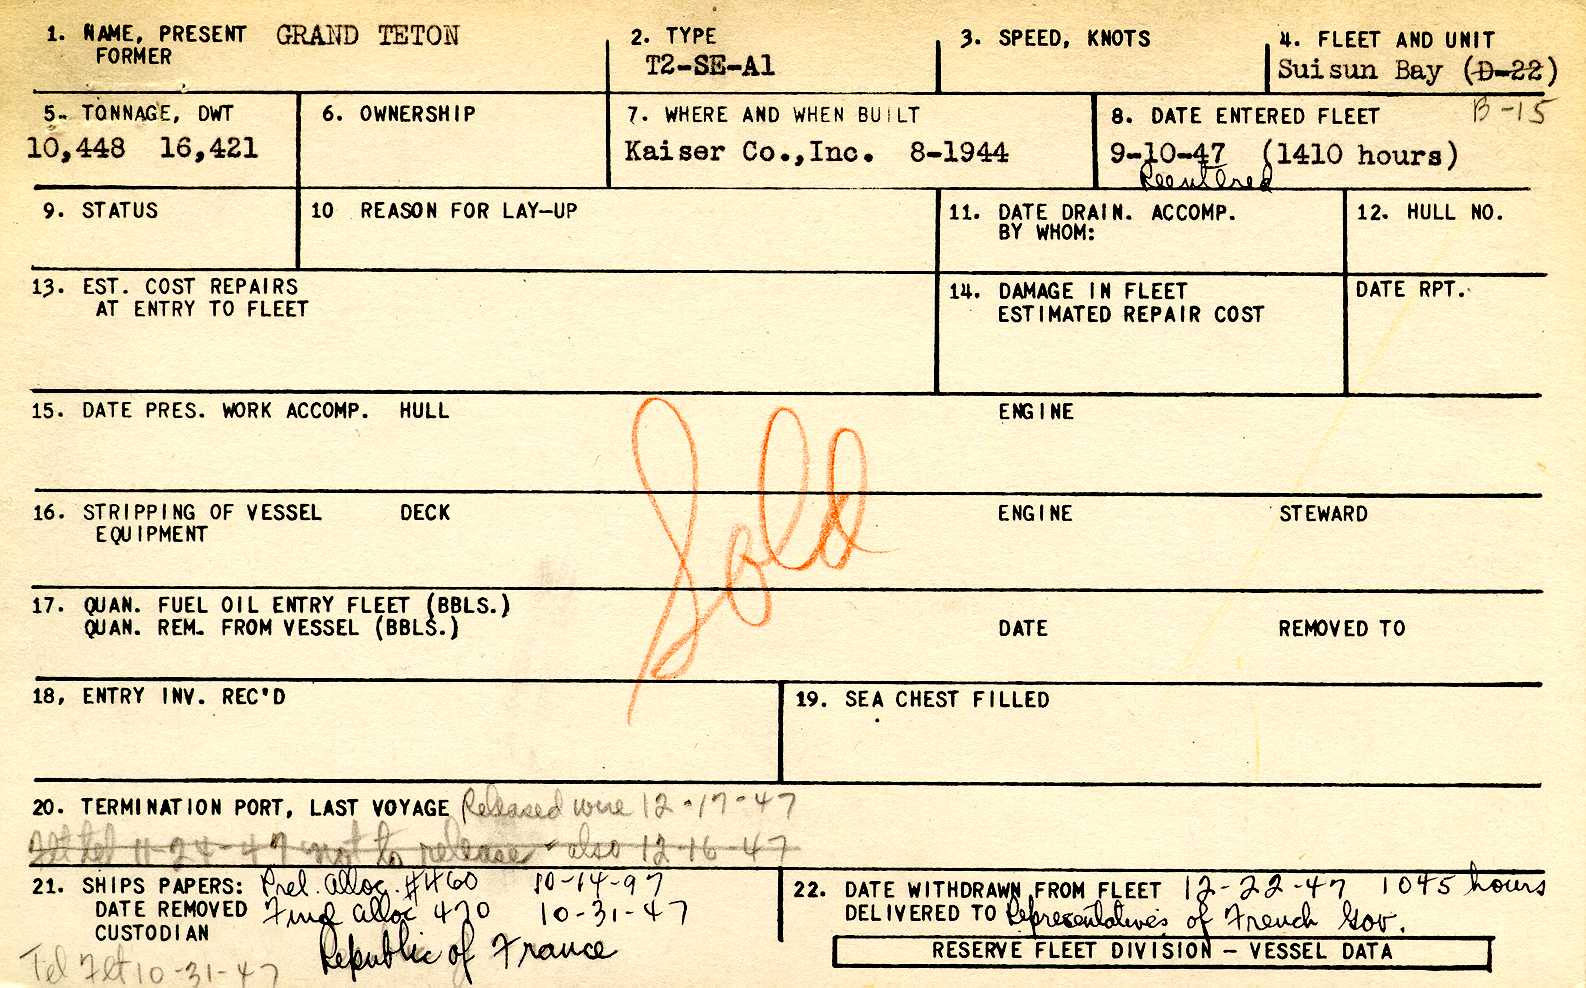 1. NAME, PRESENT GRAND TETON
FORMER
2. TYPE
T2-SE-A1
3. SPEED, KNOTS
4. FLEET AND UNIT
Suisun Bay (D-22)
B-15
5. TONNAGE, DWT
10,448 16,421
6. OWNERSHIP
7. WHERE AND WHEN BUILT
Kaiser Co.,Inc. 8-1944
8. DATE ENTERED FLEET
9-10-47 (1410 hours)
Reentered
9. STATUS
10 REASON FOR LAY-UP
11. DATE DRAIN. ACCOMP.
BY WHOM:
12. HULL NO.
13. EST. COST REPAIRS
AT ENTRY TO FLEET
14. DAMAGE IN FLEET
ESTIMATED REPAIR COST
DATE RPT.
15. DATE PRES. WORK ACCOMP. HULL ENGINE
Sold
16. STRIPPING OF VESSEL DECK ENGINE STEWARD
EQUIPMENT
17. QUAN. FUEL OIL ENTRY FLEET (BBLS.)
QUAN. REM. FROM VESSEL (BBLS.) DATE REMOVED TO
18, ENTRY INV. REC'D
19. SEA CHEST FILLED
20. TERMINATION PORT, LAST VOYAGE Released wire 12-17-47
tel 11-24-47 not to release - also 12-16-47
21. SHIPS PAPERS: Prel. Alloc. #460 10-14-97
DATE REMOVED Final alloc 470 10-31-47
CUSTODIAN Republic of France
Tel Flt 10-31-47
22. DATE WITHDRAWN FROM FLEET 12-22-47 1045 hours
DELIVERED TO Representatives of French Gov.
RESERVE FLEET DIVISION - VESSEL DATA